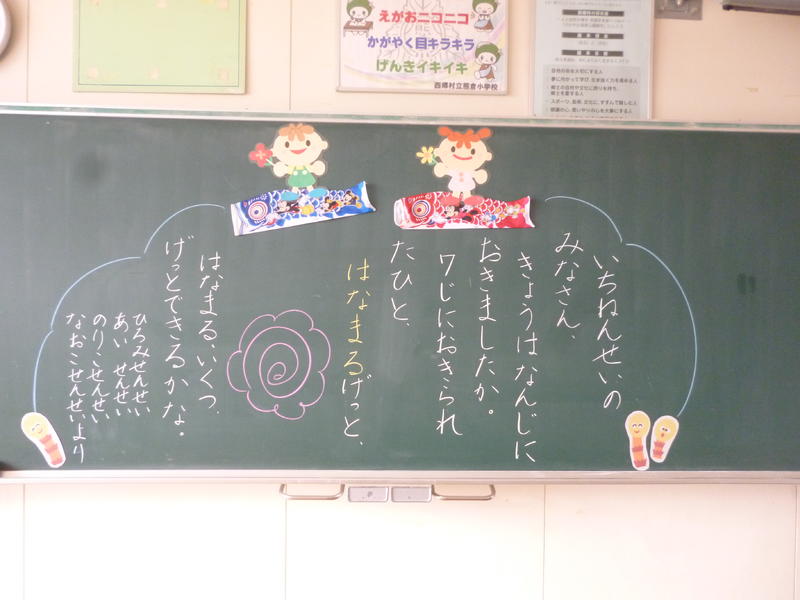 えがおニコニコ
かがやく目キラキラ
げんきイキイキ
西郷村立熊倉小学校
いちねんせいの
みなさん、
きょうはなんじに
おきましたか。
7じにおきられ
たひと、
はなまるげっと、
はなまる、いくつ、
げっとできるかな。
ひろみせんせい
あい せんせい
のりこせんせい
なおこせんせいより